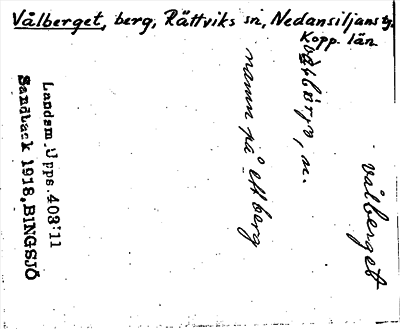 Vålberget, berg, Rättviks sn, Nedansiljans tg,
Kopp. län
vålberget
m.
namn på ett berg
Landsm. Upps. 403:11
Sandback 1918, BINGSJÖ